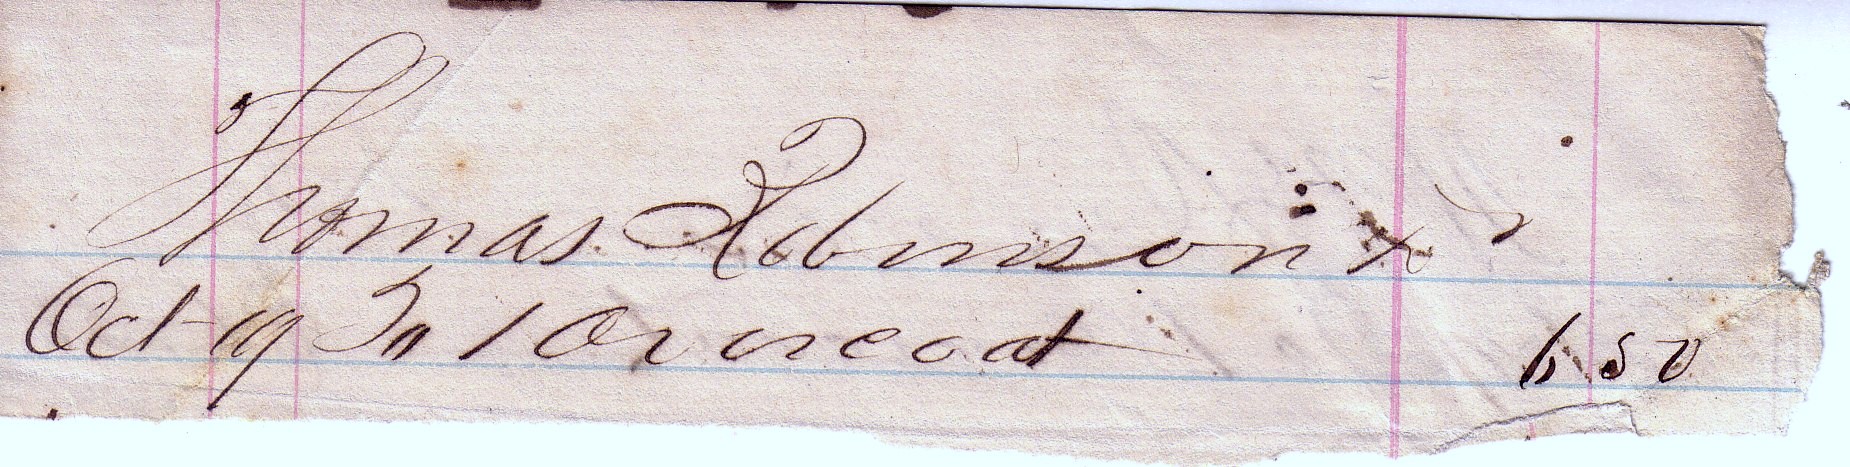 Thomas Robinson x
Oct 19 To 1 Overcoat 6.50